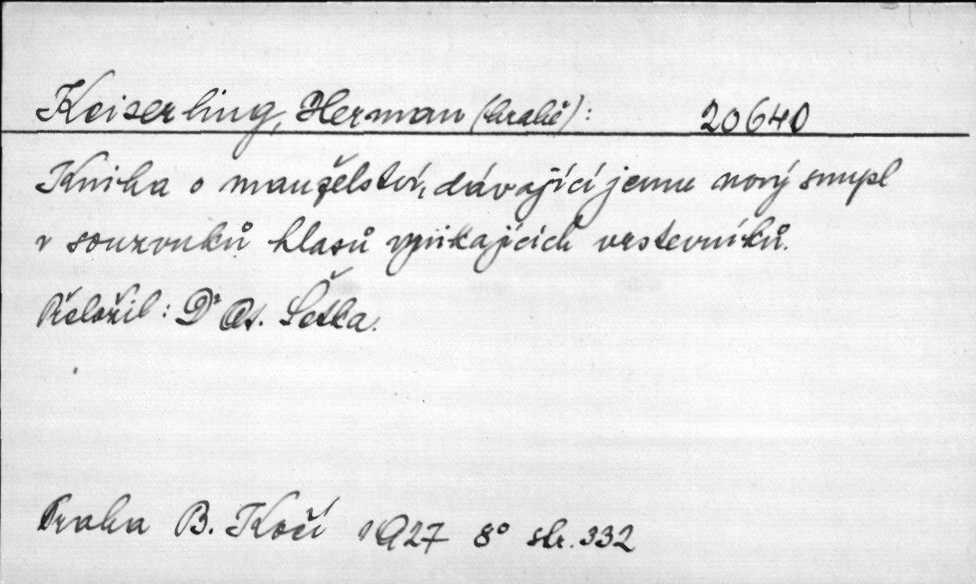 Keiserling, Herman (hrabě): 20640
Kniha o manželství, dávající jemu nový smysl
v souzvuků hlasů vynikajících vrstevníků.
Přeložil: Dr Ot. Šetka.
Praha B. Kočí 1927 8° str. 332